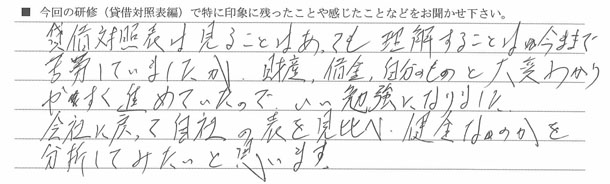 ■ 今回の研修（貸借対照表編）で特に印象に残ったことや感じたことなどをお聞かせ下さい。
貸借対照表は見ることはあっても理解することは今まで
苦労していましたが、財産、借金、自分のものと大変わかり
やすく進めていたので、いい勉強になりました
会社に戻って自社の表を見比べ、健全なのかを
分析してみたいと思います